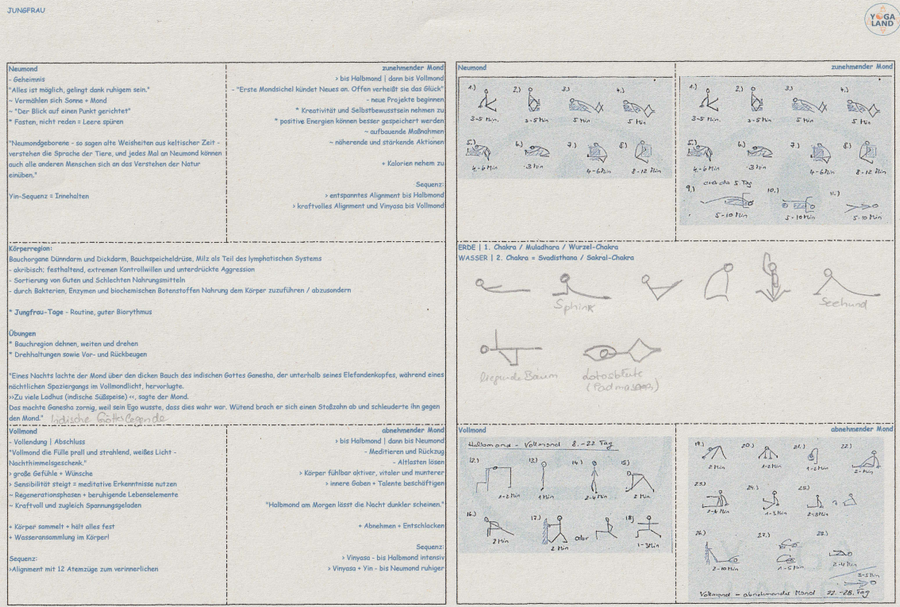 JUNGFRAU
YOGA
LAND
Neumond
- Geheimnis
"Alles ist möglich, gelingt dank ruhigem sein."
~ Vermählen sich Sonne + Mond
~ "Der Blick auf einen Punkt gerichtet"
* Fasten, nicht reden = Leere spüren
"Neumondgeborene - so sagen alte Weisheiten aus keltischer Zeit -
verstehen die Sprache der Tiere, und jedes Mal an Neumond können
auch alle anderen Menschen sich an das Verstehen der Natur
einüben."
Yin-Sequenz = Innehalten
zunehmender Mond
› bis Halbmond | dann bis Vollmond
- "Erste Mondsichel kündet Neues an. Offen verheißt sie das Glück"
- neue Projekte beginnen
* Kreativität und Selbstbewusstsein nehmen zu
* positive Energien können besser gespeichert werden
~ aufbauende Maßnahmen
~ nährende und stärkende Aktionen
+ Kalorien nehem zu
Sequenz:
› entspanntes Alignment bis Halbmond
› kraftvolles Alignment und Vinyasa bis Vollmond
Körperregion:
Bauchorgane Dünndarm und Dickdarm, Bauchspeicheldrüse, Milz als Teil des lymphatischen Systems
- akribisch; festhaltend, extremen Kontrollwillen und unterdrückte Aggression
- Sortierung von Guten und Schlechten Nahrungsmitteln
- durch Bakterien, Enzymen und biochemischen Botenstoffen Nahrung dem Körper zuzuführen / abzusondern
* Jungfrau-Tage - Routine, guter Biorythmus
Übungen
* Bauchregion dehnen, weiten und drehen
* Drehhaltungen sowie Vor- und Rückbeugen
"Eines Nachts lachte der Mond über den dicken Bauch des indischen Gottes Ganesha, der unterhalb seines Elefandenkopfes, während eines
nächtlichen Spaziergangs im Vollmondlicht, hervorlugte.
››Zu viele Ladhus (indische Süßspeise) ‹‹, sagte der Mond.
Das machte Ganesha zornig, weil sein Ego wusste, dass dies wahr war. Wütend brach er sich einen Stoßzahn ab und schleuderte ihn gegen
den Mond." Indische Götterlegende
Vollmond
- Vollendung | Abschluss
"Vollmond die Fülle prall und strahlend, weißes Licht -
Nachthimmelsgeschenk."
› große Gefühle + Wünsche
› Sensibilität steigt = meditative Erkenntnisse nutzen
~ Regenerationsphasen + beruhigende Lebenselemente
~ Kraftvoll und zugleich Spannungsgeladen
+ Körper sammelt + hält alles fest
+ Wasseransammlung im Körper!
Sequenz:
›Alignment mit 12 Atemzüge zum verinnerlichen
abnehmender Mond
› bis Halbmond | dann bis Neumond
- Meditieren und Rückzug
- Altlasten lösen
› Körper fühlbar aktiver, vitaler und munterer
› innere Gaben + Talente beschäftigen
"Halbmond am Morgen lässt die Nacht dunkler scheinen."
+ Abnehmen + Entschlacken
Sequenz:
› Vinyasa - bis Halbmond intensiv
› Vinyasa + Yin - bis Neumond ruhiger
Neumond
1.) 2.) 3.) 4.)
3-5 Min 2-5 Min 5 Min 5 Min
5.) 6.) 7.) 8.)
4-6 Min 3 Min 4-6 Min 8-12 Min
zunehmender Mond
1.) 2.) 3.) 4.)
3-5 Min 2-5 Min 5 Min 5 Min
5.) 6.) 7.) 8.)
4-6 Min 3 Min 4-6 Min 8-12 Min
5 Tag
9.) 10.) 11.)
5-10 Min 5-10 Min 5 Min
ERDE | 1. Chakra / Muladhara / Wurzel-Chakra
WASSER | 2. Chakra = Svadisthana / Sakral-Chakra
Sphinx
Seehund
liegende Baum
Lotosblüte
(Padmasana)
Vollmond
Halbmond - Vollmond 8.-22 Tag
12.) 13.) 14.) 15.)
1-2 Min 1 Min 2 Min
16.) 17.) oder 18.)
2 Min 2 Min 1-3 Min
abnehmender Mond
19.) 20.) 21.) 22.)
2 Min 1-2 Min 1-2 Min 2-4 Min
23.) 24.) 25.)
26.) 27.) 28.)
2-10 Min 1-5 Min 2-4 Min
Vollmond - abnehmender Mond 22.-28. Tag